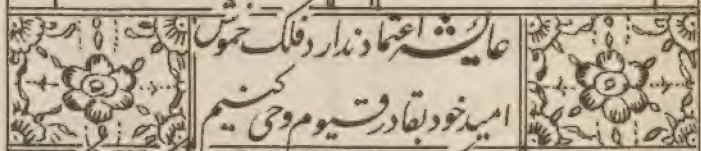 عایشه اعتماد ندارد فلک خموش
امید خود بقادر قیوم و حی کنیم